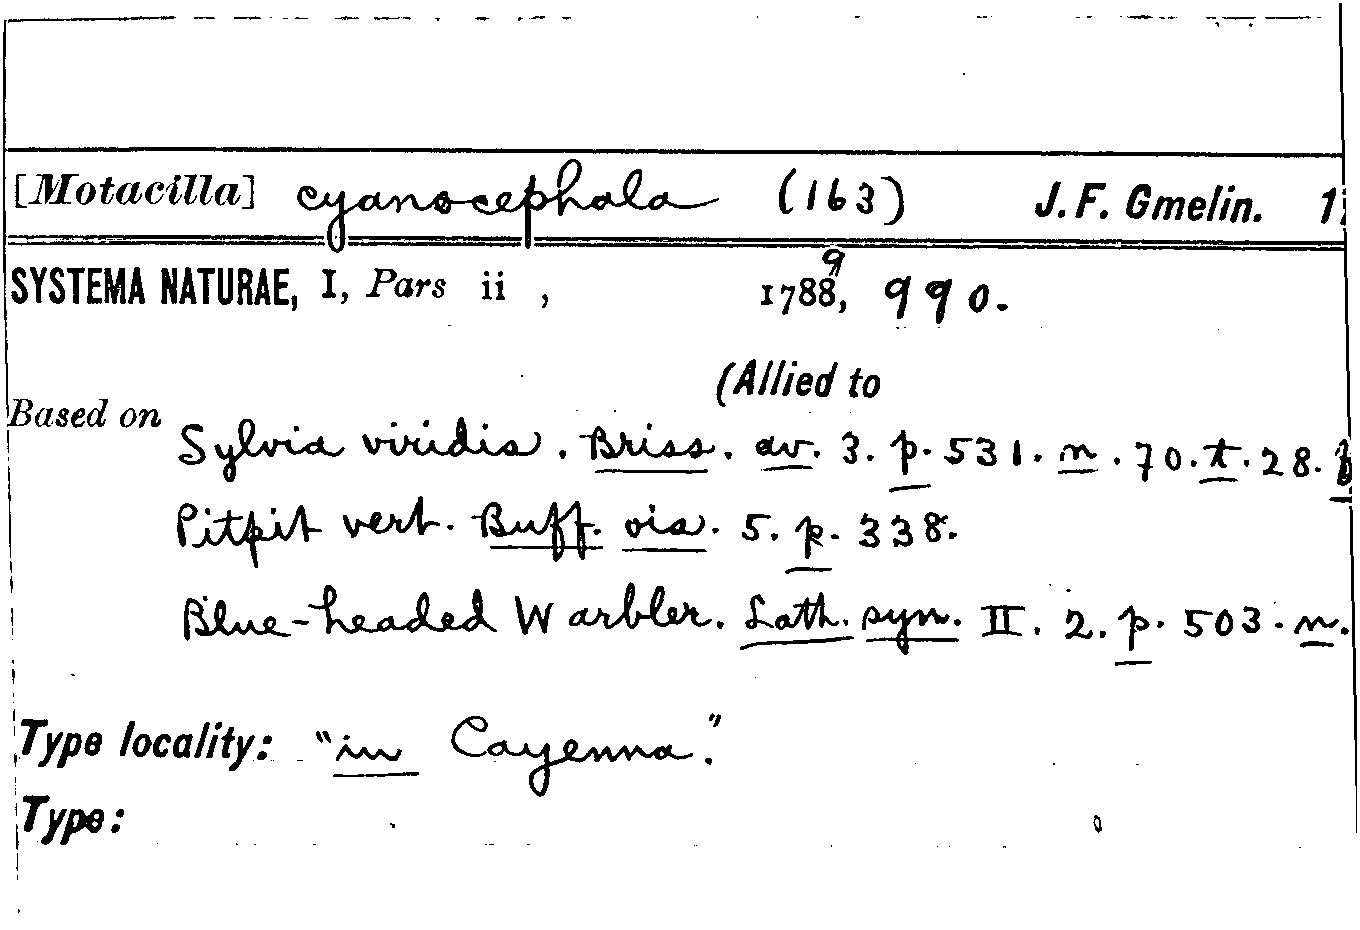 [Motacilla] cyanocephala (163) J. F. Gmelin.
SYSTEMA NATURAE, I, Pars ii , 1788, 9 990.
(Allied to
Based on
Sylvia viridis. Briss. av. 3. p. 531. n. 70. t. 28.
Pitpit vert. Buff. ois. 5. p. 338.
Blue-headed Warbler. Lath. syn. II. 2. p. 503. n.
Type locality: "in Cayenna."
Type: